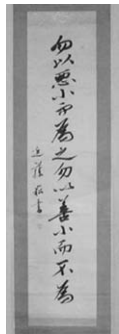 勿以惡小而為之勿以善小而不為